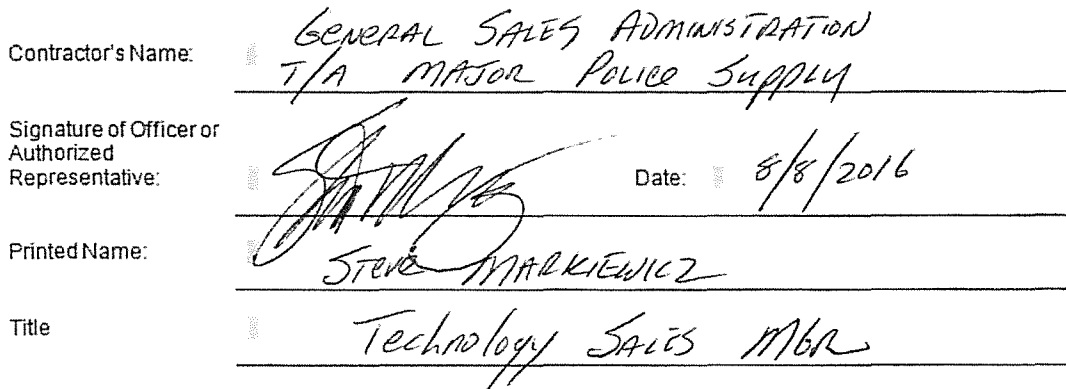 Contractor's Name: GENERAL SALES ADMINISTRATION
T/A MAJOR POLICE SUPPLY
Signature of Officer or
Authorized
Representative:
Date: 8/8/2016
Printed Name: STEVE MARKIEWICZ
Title Technology SALES MGR